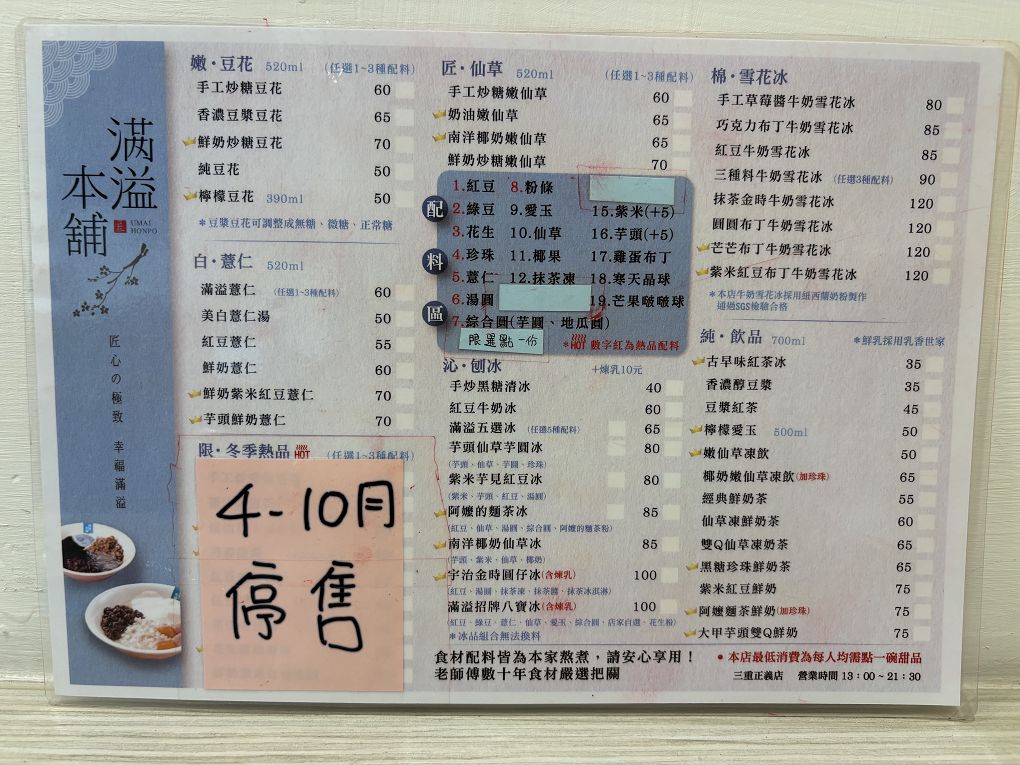 滿溢
本舖
匠
UMAI
HONPO
匠心の極致 幸福滿溢
嫩·豆花 520ml (任選1~3種配料)
手工炒糖豆花 60
香濃豆漿豆花 65
鮮奶炒糖豆花 70
純豆花 50
檸檬豆花 390ml 50
*豆漿豆花可調整成無糖、微糖、正常糖
白·薏仁 520ml
滿溢薏仁 (任選1~3種配料) 60
美白薏仁湯 50
紅豆薏仁 55
鮮奶薏仁 60
鮮奶紫米紅豆薏仁 70
芋頭鮮奶薏仁 70
限·冬季熱品 HOT (任選1~3種配料)
4-10月
停售
匠·仙草 520ml (任選1~3種配料)
手工炒糖嫩仙草 60
奶油嫩仙草 65
南洋椰奶嫩仙草 65
鮮奶炒糖嫩仙草 70
配料區
1.紅豆 8.粉條
2.綠豆 9.愛玉 15.紫米(+5)
3.花生 10.仙草 16.芋頭(+5)
4.珍珠 11.椰果 17.雞蛋布丁
5.薏仁 12.抹茶凍 18.寒天晶球
6.湯圓 19.芒果啵啵球
7.綜合圓(芋圓、地瓜圓)
限單點一份
*HOT 數字紅為熱品配料
沁·刨冰 +煉乳10元
手炒黑糖清冰 40
紅豆牛奶冰 60
滿溢五選冰 (任選5種配料) 65
芋頭仙草芋圓冰 80
(芋頭、仙草、芋圓、珍珠)
紫米芋見紅豆冰 80
(紫米、芋頭、紅豆、湯圓)
阿嬤的麵茶冰 85
(紅豆、仙草、湯圓、綜合圓、阿嬤的麵茶粉)
南洋椰奶仙草冰 85
(芋頭、紫米、仙草、椰奶)
宇治金時圓仔冰(含煉乳) 100
(紅豆、湯圓、抹茶凍、抹茶醬、抹茶冰淇淋)
滿溢招牌八寶冰(含煉乳) 100
(紅豆、綠豆、薏仁、仙草、愛玉、綜合圓、店家自選、花生粉)
*冰品組合無法換料
棉·雪花冰
手工草莓醬牛奶雪花冰 80
巧克力布丁牛奶雪花冰 85
紅豆牛奶雪花冰 85
三種料牛奶雪花冰 (任選3種配料) 90
抹茶金時牛奶雪花冰 120
圓圓布丁牛奶雪花冰 120
芒芒布丁牛奶雪花冰 120
紫米紅豆布丁牛奶雪花冰 120
*本店牛奶雪花冰採用紐西蘭奶粉製作
通過SGS檢驗合格
純·飲品 700ml *鮮乳採用乳香世家
古早味紅茶冰 35
香濃醇豆漿 35
豆漿紅茶 45
檸檬愛玉 500ml 50
嫩仙草凍飲 50
椰奶嫩仙草凍飲(加珍珠) 65
經典鮮奶茶 55
仙草凍鮮奶茶 60
雙Q仙草凍奶茶 65
黑糖珍珠鮮奶茶 65
紫米紅豆鮮奶 75
阿嬤麵茶鮮奶(加珍珠) 75
大甲芋頭雙Q鮮奶 75
食材配料皆為本家熬煮,請安心享用!
老師傅數十年食材嚴選把關
•本店最低消費為每人均需點一碗甜品
三重正義店 營業時間 13:00~21:30